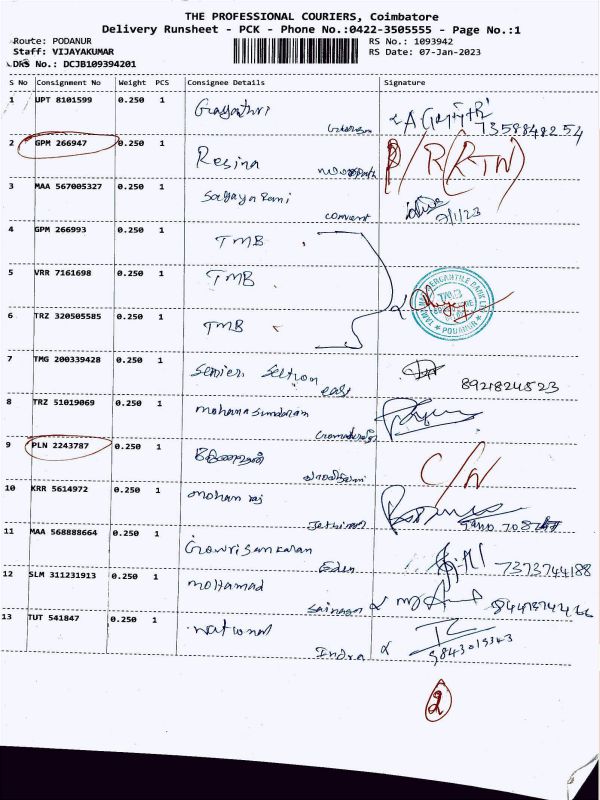 THE PROFESSIONAL COURIERS, Coimbatore
Delivery Runsheet - PCK - Phone No.:0422-3505555 - Page No.:1
Route: PODANUR
RS No.: 1093942
Staff: VIJAYAKUMAR
RS Date: 07-Jan-2023
DRS No.: DCJB109394201
S No Consignment No Weight PCS Consignee Details Signature
1 UPT 8101599 0.250 1 Gayathri
7359848254
2 GPM 266947 0.250 1 Resina R(RTN)
3 MAA 567005327 0.250 1 Sagayarani
convent 7/1/23
4 GPM 266993 0.250 1 TMB
5 VRR 7161698 0.250 1 TMB
TAMIL MERCANTILE BANK
PODANUR
6 TRZ 320505585 0.250 1 TMB
7 TMG 200339428 0.250 1 Senier Section
8921824523
8 TRZ 51019069 0.250 1 mohana sundaram
9 PLN 2243787 0.250 1
C/N
10 KRR 5614972 0.250 1 mohan raj
11 MAA 568888664 0.250 1 Gowrisankaran
Eden 7373744188
12 SLM 311231913 0.250 1 mohamad
13 TUT 541847 0.250 1 national
Indra 9843019343
2